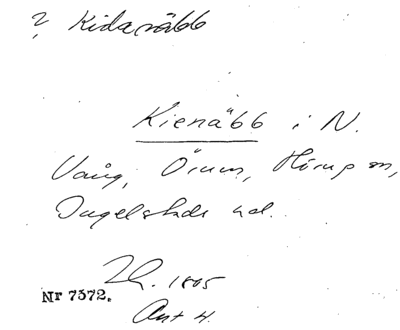 ? Kidanäbb
Kienäbb i N.
Vång, Örum, Hörups sn,
Ingelstads hd.
1805
Nr 7572.
Akt 4.